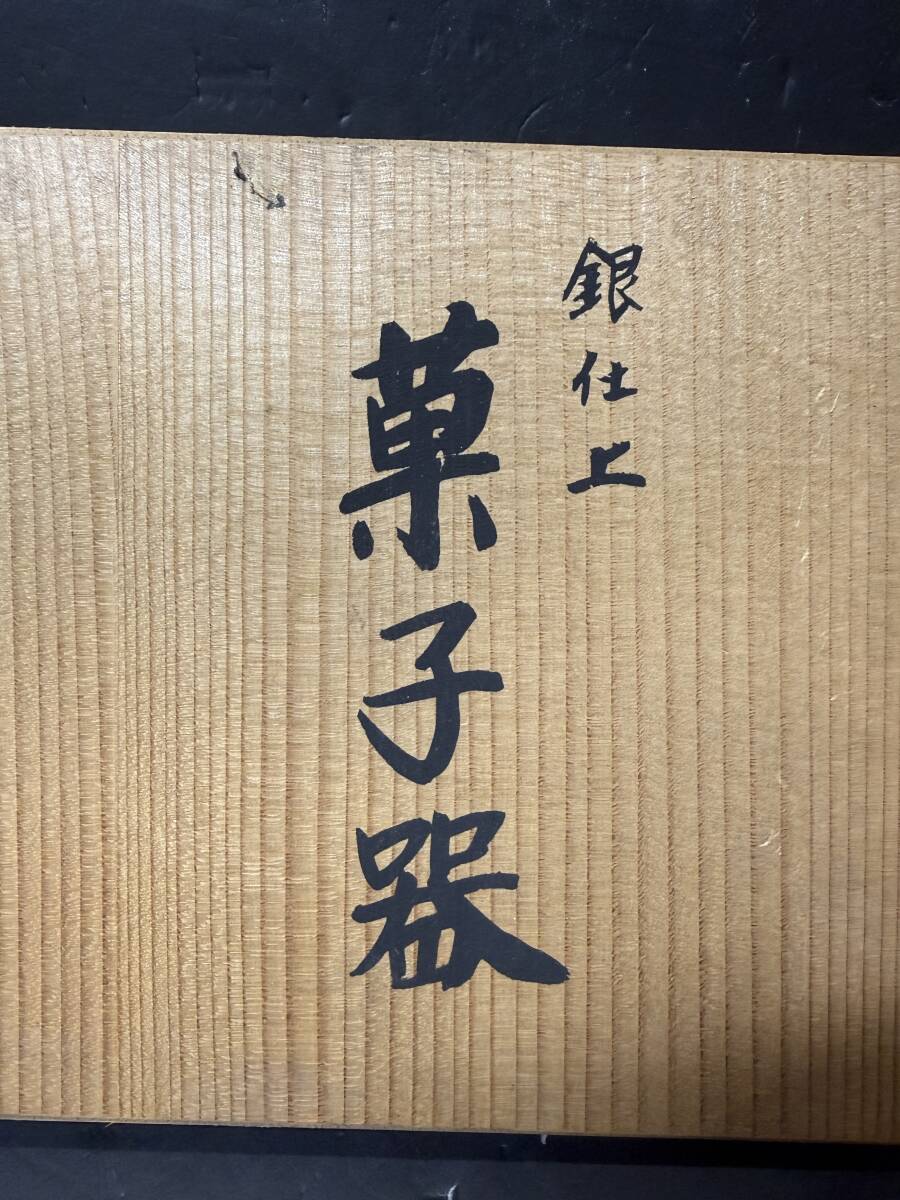 銀仕上
菓子器